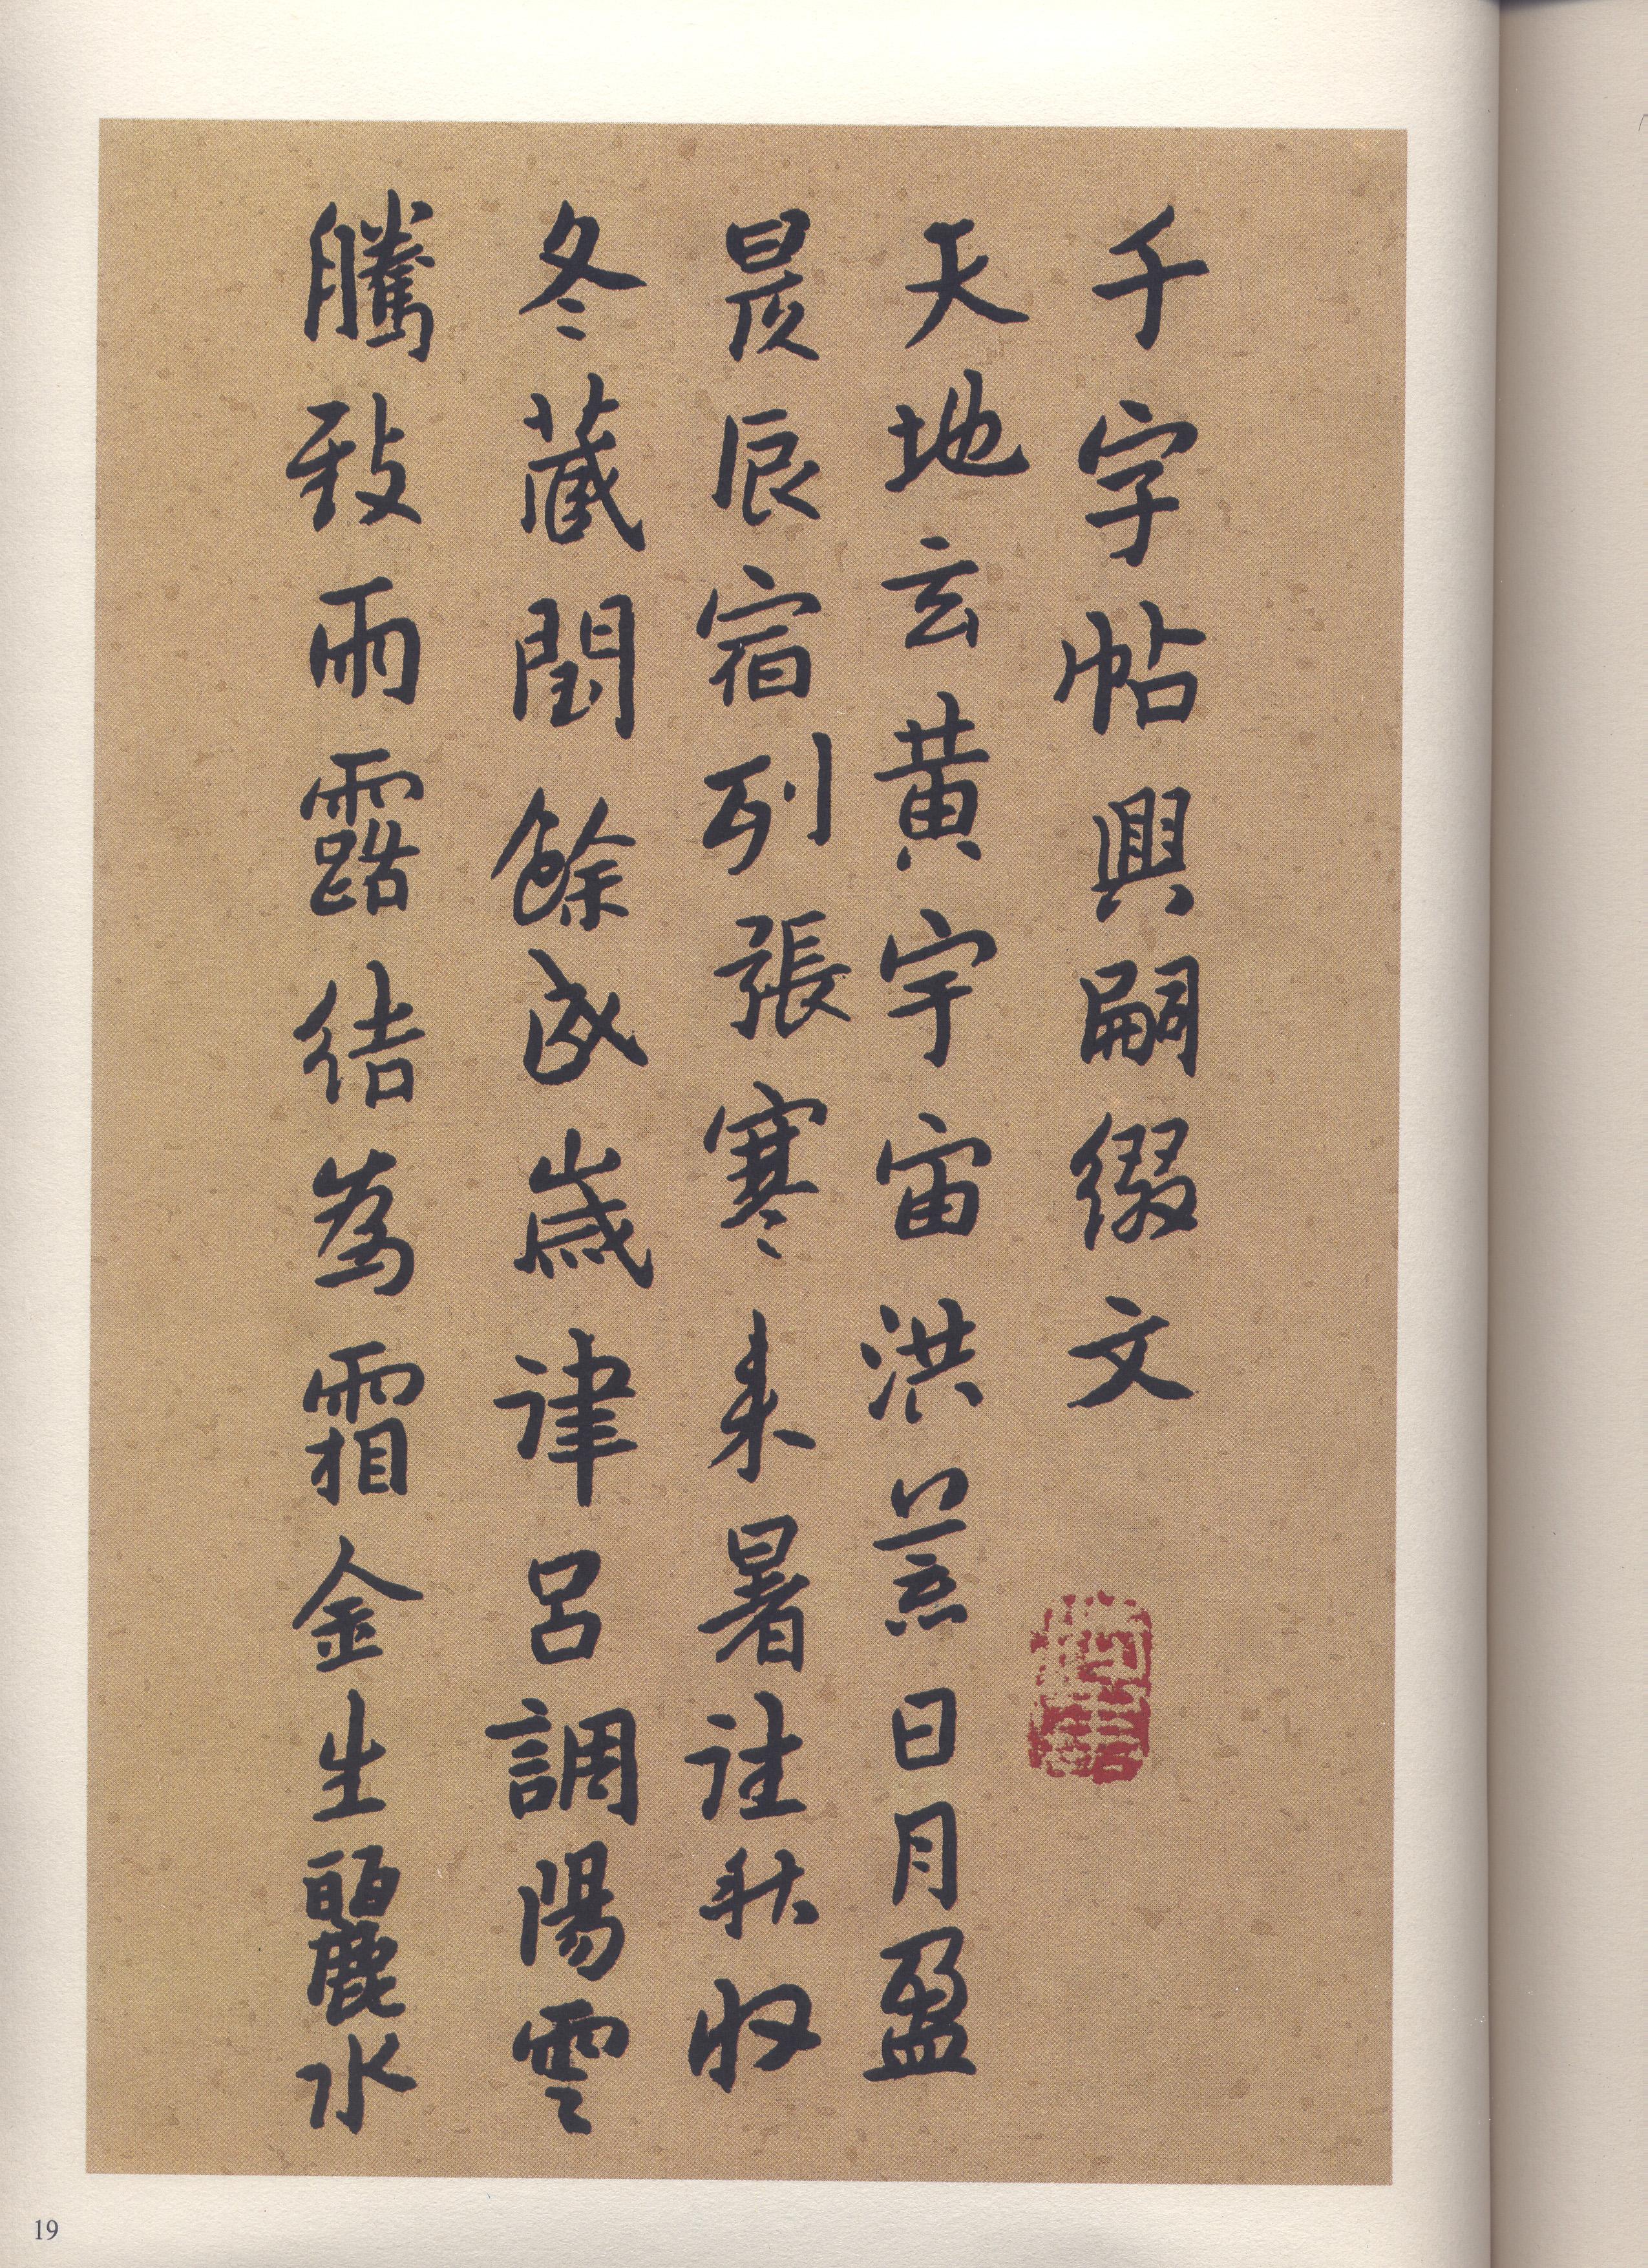 千字帖興嗣綴文
天地玄黄宇宙洪荒日月盈
昃辰宿列張寒来暑往秋収
冬藏閏餘成歲律呂調陽雲
騰致雨露結為霜金生麗水
19